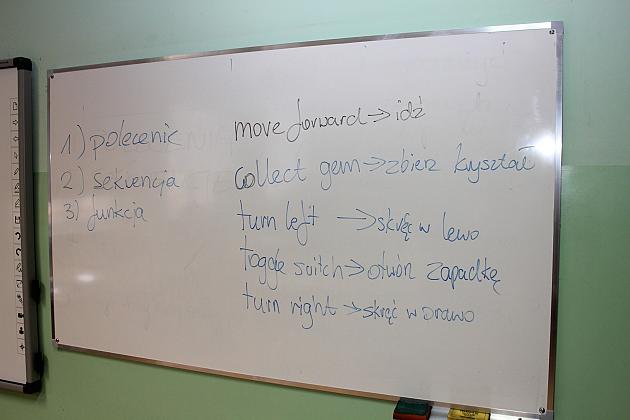 1) polecenie
2) sekwencja
3) funkcja
move forward → idź
collect gem → zbierz kryształ
turn left → skręć w lewo
toggle suitch → otwórz zapadkę
turn right → skręć w prawo